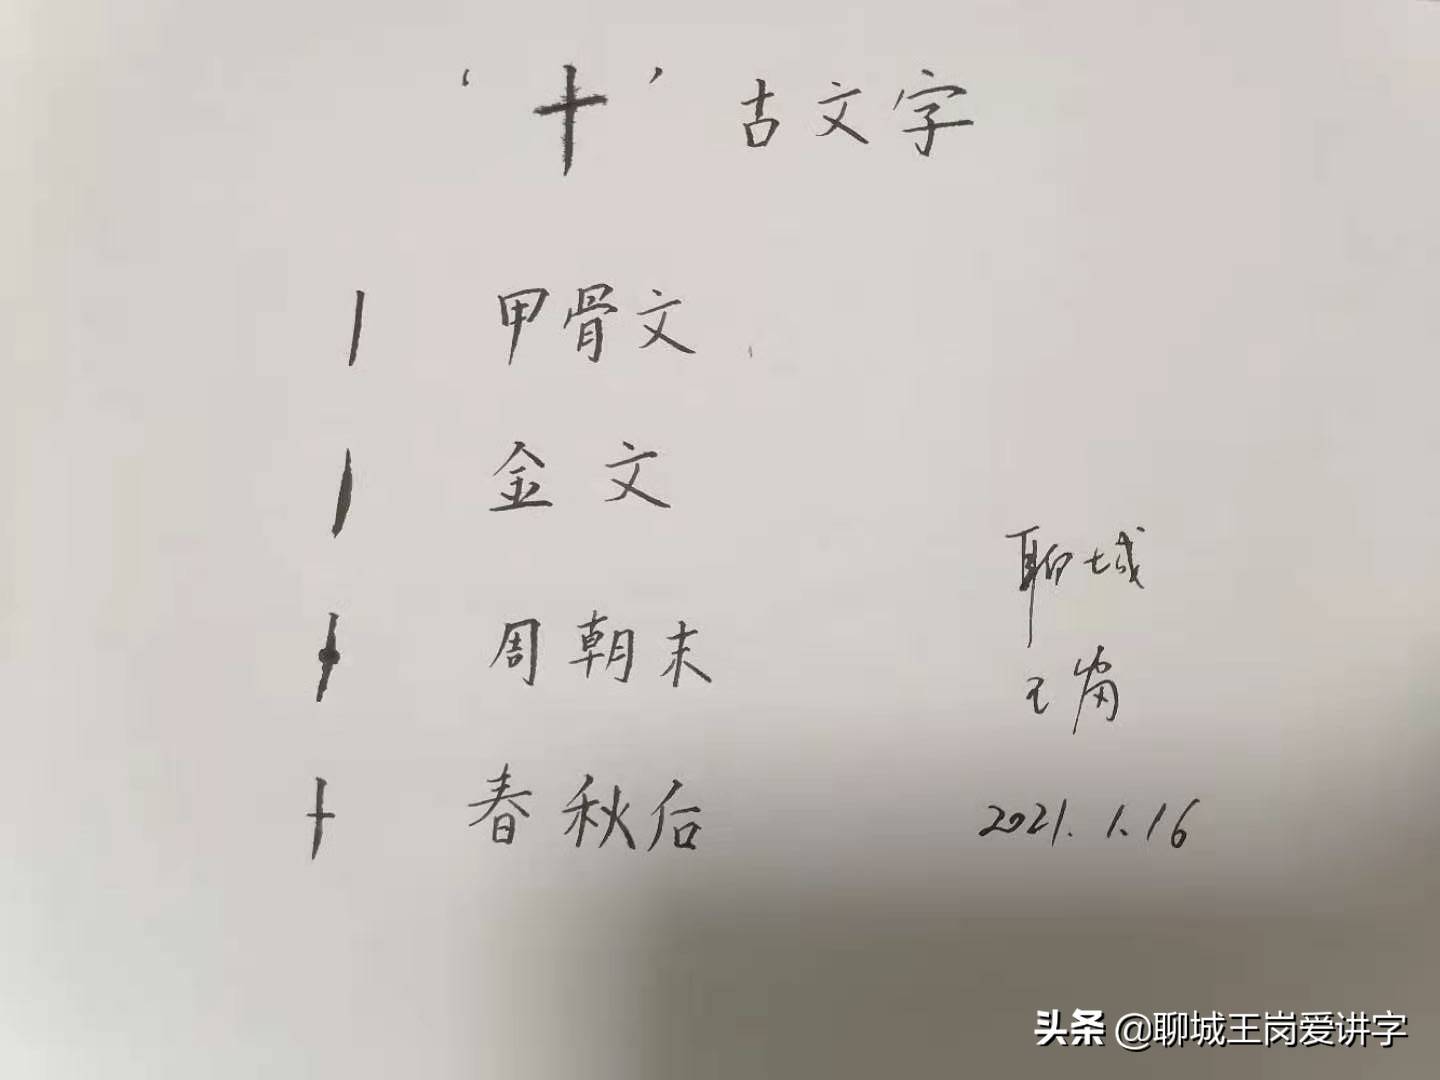 ‘十’古文字
丨 甲骨文
丨 金文
周朝末
十 春秋后
聊城
王岗
2021.1.16
头条 @聊城王岗爱讲字